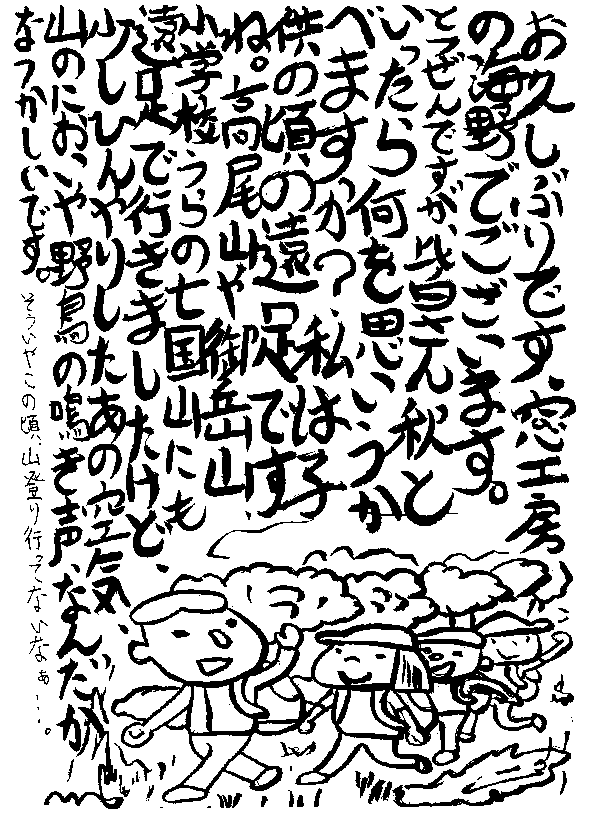 お久しぶりです、窓工房
の海野でございます。
とつぜんですが、皆さん秋と
いったら何を思いうか
べますか？私は子
供の頃の遠足です
ね。高尾山や御岳山
小学校うらの七国山にも
遠足で行きましたけど、
少しひんやりしたあの空気、
山のにおいや野鳥の鳴き声、なんだか
なつかしいです。
そういやこの頃、山登り行ってないなぁ…。